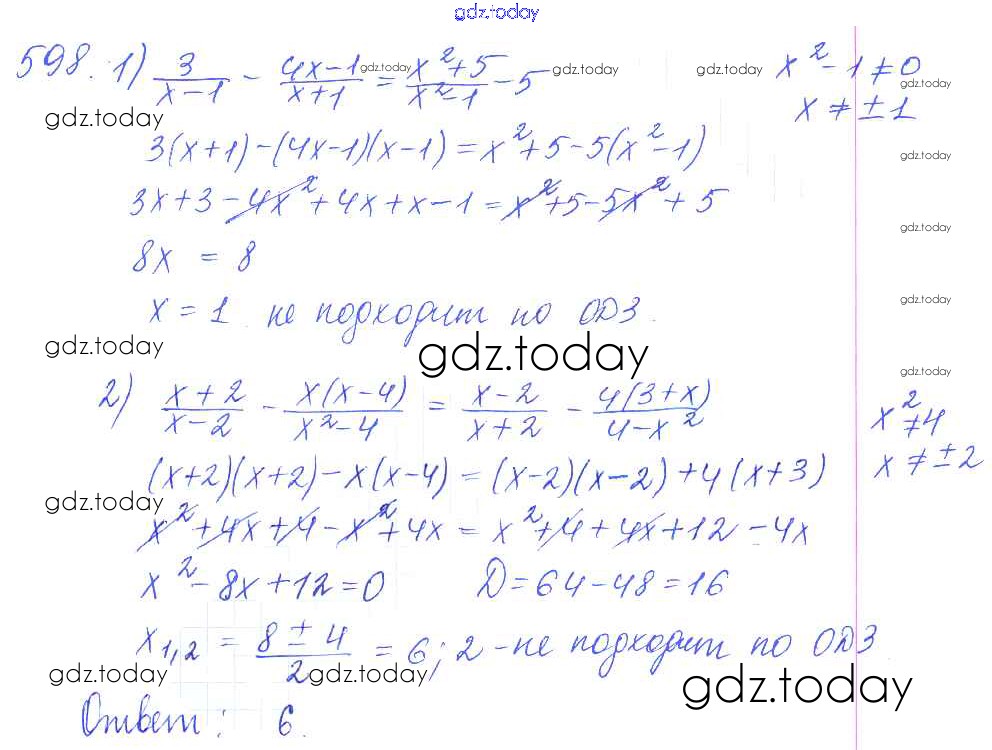 gdz.today
598. 1) 3/(x-1) - (4x-1)/(x+1) = (x²+5)/(x²-1) - 5 x²-1≠0
gdz.today gdz.today gdz.today gdz.today
gdz.today x≠±1
3(x+1)-(4x-1)(x-1)=x²+5-5(x²-1) gdz.today
3x+3-4x²+4x+x-1=x²+5-5x²+5
8x = 8 gdz.today
x=1 не подходит по ОДЗ. gdz.today
gdz.today gdz.today gdz.today
2) (x+2)/(x-2) - x(x-4)/(x²-4) = (x-2)/(x+2) - 4(3+x)/(4-x²) x²≠4
(x+2)(x+2)-x(x-4)=(x-2)(x-2)+4(x+3) x≠±2
gdz.today
x²+4x+4-x²+4x=x²+4+4x+12-4x
x²-8x+12=0 D=64-48=16
x1,2 = (8±4)/2 = 6; 2 - не подходит по ОДЗ
gdz.today gdz.today gdz.today
Ответ: 6.